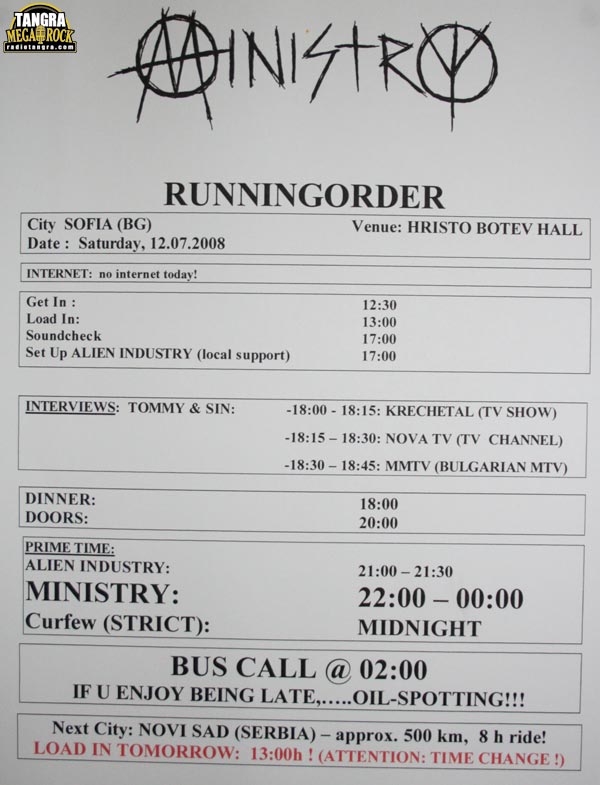 TANGRA
MEGA ROCK
radiotangra.com
MINISTRY
RUNNINGORDER
City SOFIA (BG) Venue: HRISTO BOTEV HALL
Date : Saturday, 12.07.2008
INTERNET: no internet today!
Get In : 12:30
Load In: 13:00
Soundcheck 17:00
Set Up ALIEN INDUSTRY (local support) 17:00
INTERVIEWS: TOMMY & SIN: -18:00 - 18:15: KRECHETAL (TV SHOW)
-18:15 – 18:30: NOVA TV (TV CHANNEL)
-18:30 – 18:45: MMTV (BULGARIAN MTV)
DINNER: 18:00
DOORS: 20:00
PRIME TIME:
ALIEN INDUSTRY: 21:00 – 21:30
MINISTRY: 22:00 – 00:00
Curfew (STRICT): MIDNIGHT
BUS CALL @ 02:00
IF U ENJOY BEING LATE,.....OIL-SPOTTING!!!
Next City: NOVI SAD (SERBIA) – approx. 500 km, 8 h ride!
LOAD IN TOMORROW: 13:00h ! (ATTENTION: TIME CHANGE !)